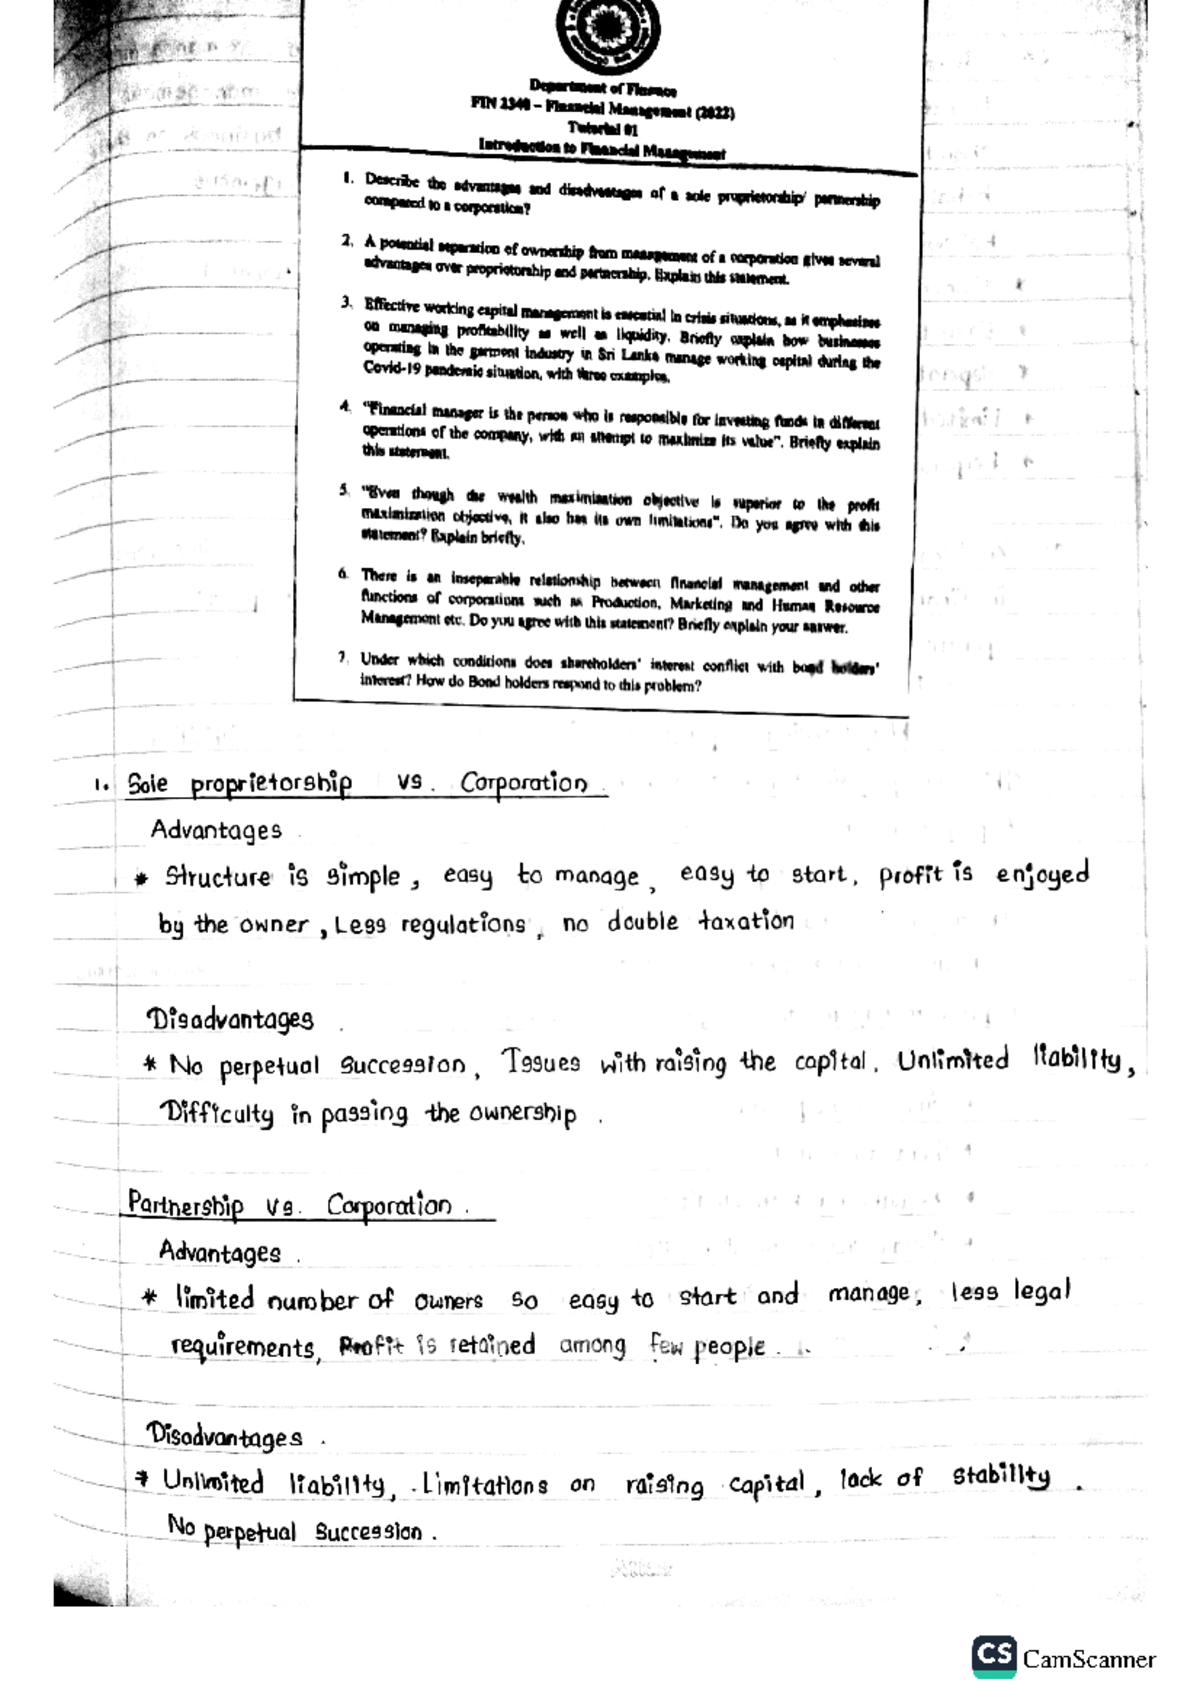 Department of Finance
FIN 2340 – Financial Management (2022)
Tutorial 01
Introduction to Financial Management
1. Describe the advantages and disadvantages of a sole proprietorship/ partnership
compared to a corporation?
2. A potential separation of ownership from management of a corporation gives several
advantages over proprietorship and partnership. Explain this statement.
3. Effective working capital management is essential in crisis situations, as it emphasizes
on managing profitability as well as liquidity. Briefly explain how businesses
operating in the garment industry in Sri Lanka manage working capital during the
Covid-19 pandemic situation, with three examples.
4. "Financial manager is the person who is responsible for investing funds in different
operations of the company, with an attempt to maximize its value". Briefly explain
this statement.
5. "Even though the wealth maximization objective is superior to the profit
maximization objective, it also has its own limitations". Do you agree with this
statement? Explain briefly.
6. There is an inseparable relationship between financial management and other
functions of corporations such as Production, Marketing and Human Resource
Management etc. Do you agree with this statement? Briefly explain your answer.
7. Under which conditions does shareholders' interest conflict with bond holders'
interest? How do Bond holders respond to this problem?
1. Sole proprietorship vs. Corporation
Advantages
* Structure is simple, easy to manage, easy to start, profit is enjoyed
by the owner, Less regulations, no double taxation
Disadvantages
* No perpetual succession, Issues with raising the capital. Unlimited liability,
Difficulty in passing the ownership.
Partnership vs. Corporation.
Advantages.
* limited number of owners so easy to start and manage, less legal
requirements, Profit is retained among few people.
Disadvantages.
* Unlimited liability, Limitations on raising capital, lack of stability.
No perpetual succession.
CS CamScanner